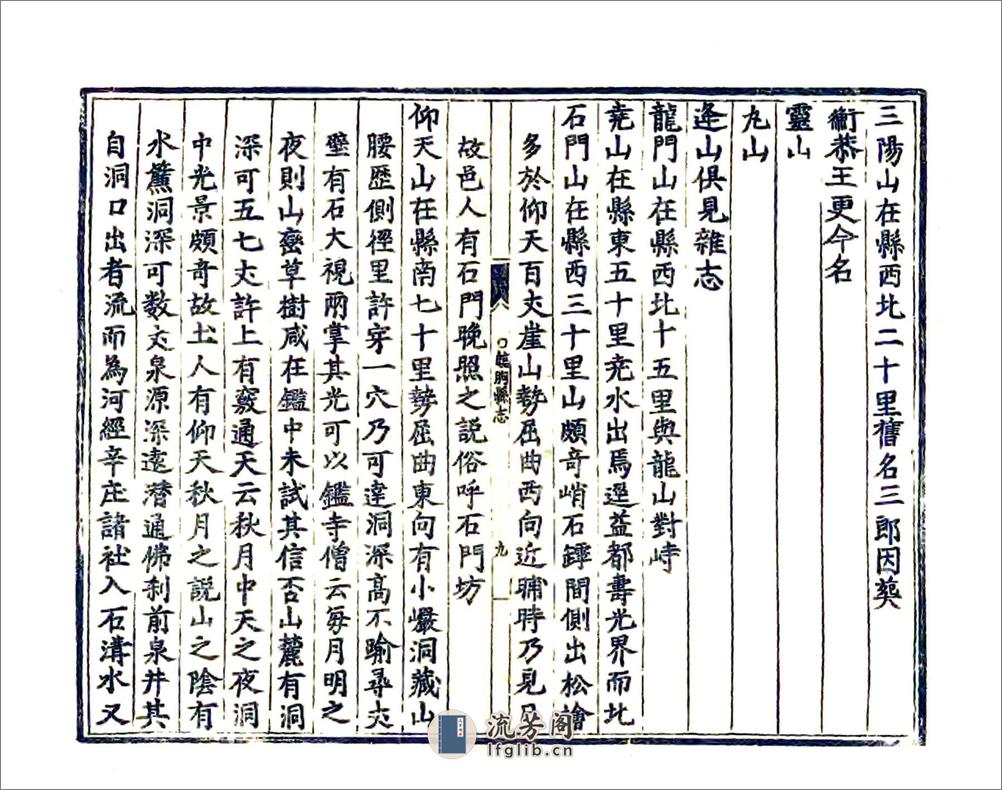 三陽山在縣西北二十里舊名三郎因葬
衡恭王更今名
靈山
九山
逄山俱見雜志
龍門山在縣西北十五里與龍山對峙
尭山在縣東五十里尭水出焉逕益都壽光界而北
石門山在縣西三十里山頗竒峭石罅間側出松檜
多於仰天百丈崖山勢屈曲西向近晡時乃見日
故邑人有石門晚照之説俗呼石門坊
臨朐縣志
九
仰天山在縣南七十里勢屈曲東向有小巖洞藏山
腰歴側徑里許穿一穴乃可達洞深髙不踰尋丈
壁有石大視兩掌其光可以鑑寺僧云每月明之
夜則山巒草樹咸在鑑中未試其信否山麓有洞
深可五七丈許上有竅通天云秋月中天之夜洞
中光景頗竒故土人有仰天秋月之説山之陰有
水簾洞深可数丈泉源深遠潛通佛刹前泉井其
自洞口出者流而為河經辛庄諸社入石溝水又
流芳阁
lfglib.cn